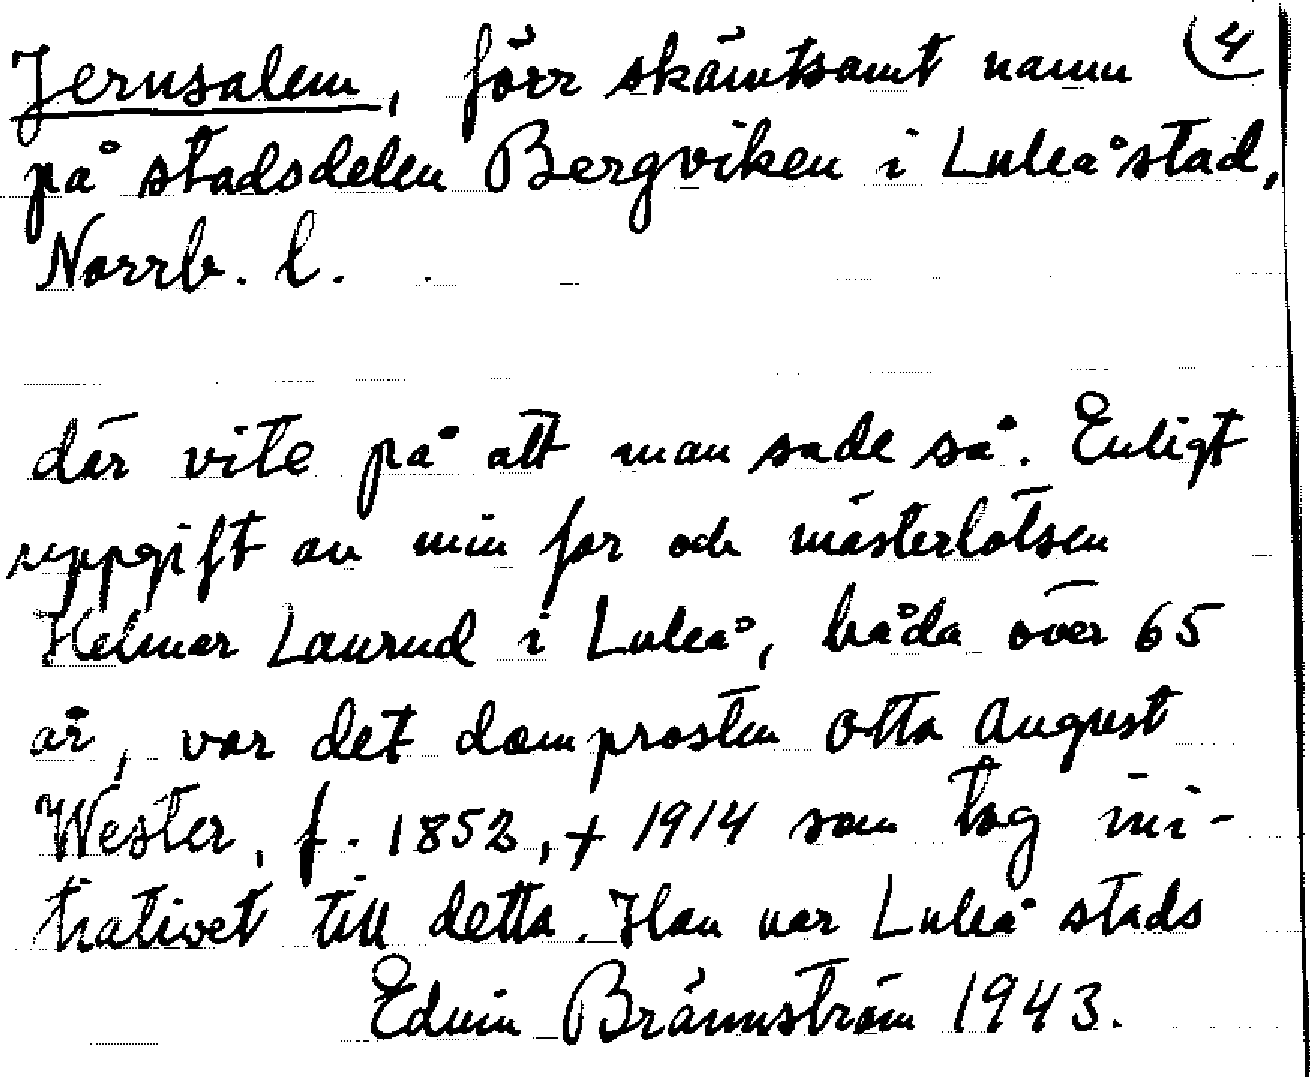 Jerusalem, förr skämtsamt namn (4
på stadsdelen Bergviken i Luleå stad,
Norrb. l.
där vite på att man sade så. Enligt
uppgift av min far och mästerlotsen
Helmer Laurud i Luleå, båda över 65
år, var det domprosten Otto August
Wester, f. 1852, † 1914 som tog ini-
tiativet till detta. Han var Luleå stads
Edvin Brännström 1943.